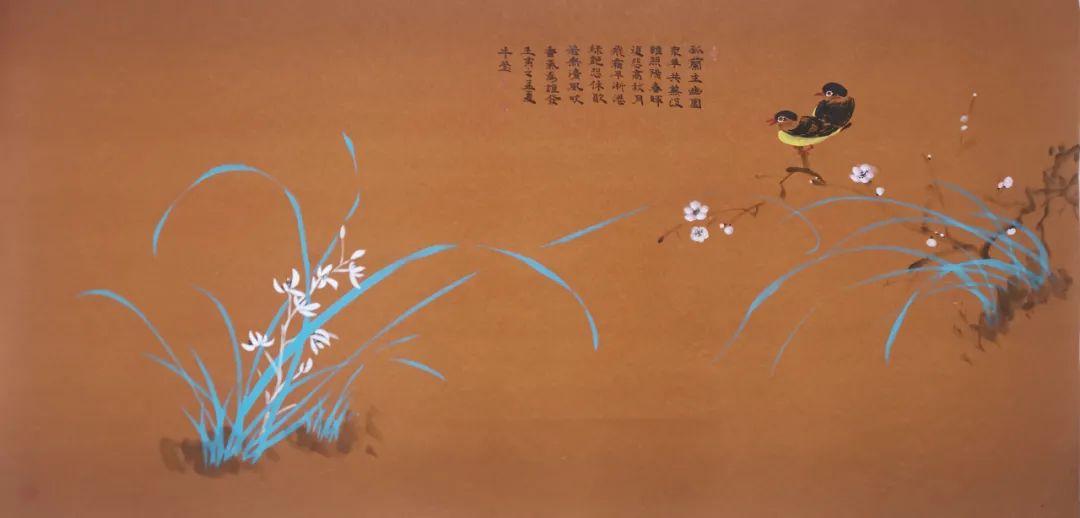 孤蘭生幽園
眾草共蕪沒
雖照陽春暉
復悲高秋月
飛霜早淅瀝
綠艷恐休歇
若無清風吹
香氣為誰發
壬寅之孟夏
牛瑩